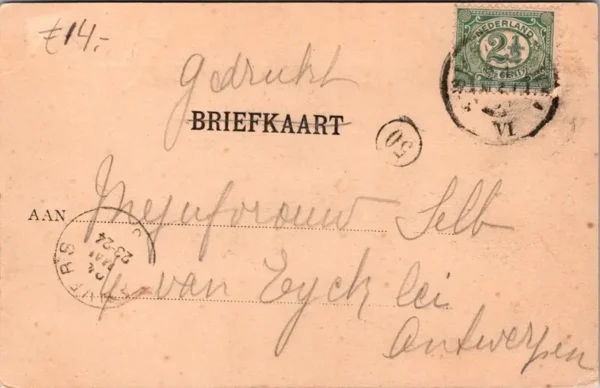 £14.-
NEDERLAND
2½
CENT
Gedrukt
BRIEFKAART
VI
50
AAN Mejufvrouw Selb
v. van Eyck lei
Antwerpen
MAI
23-24